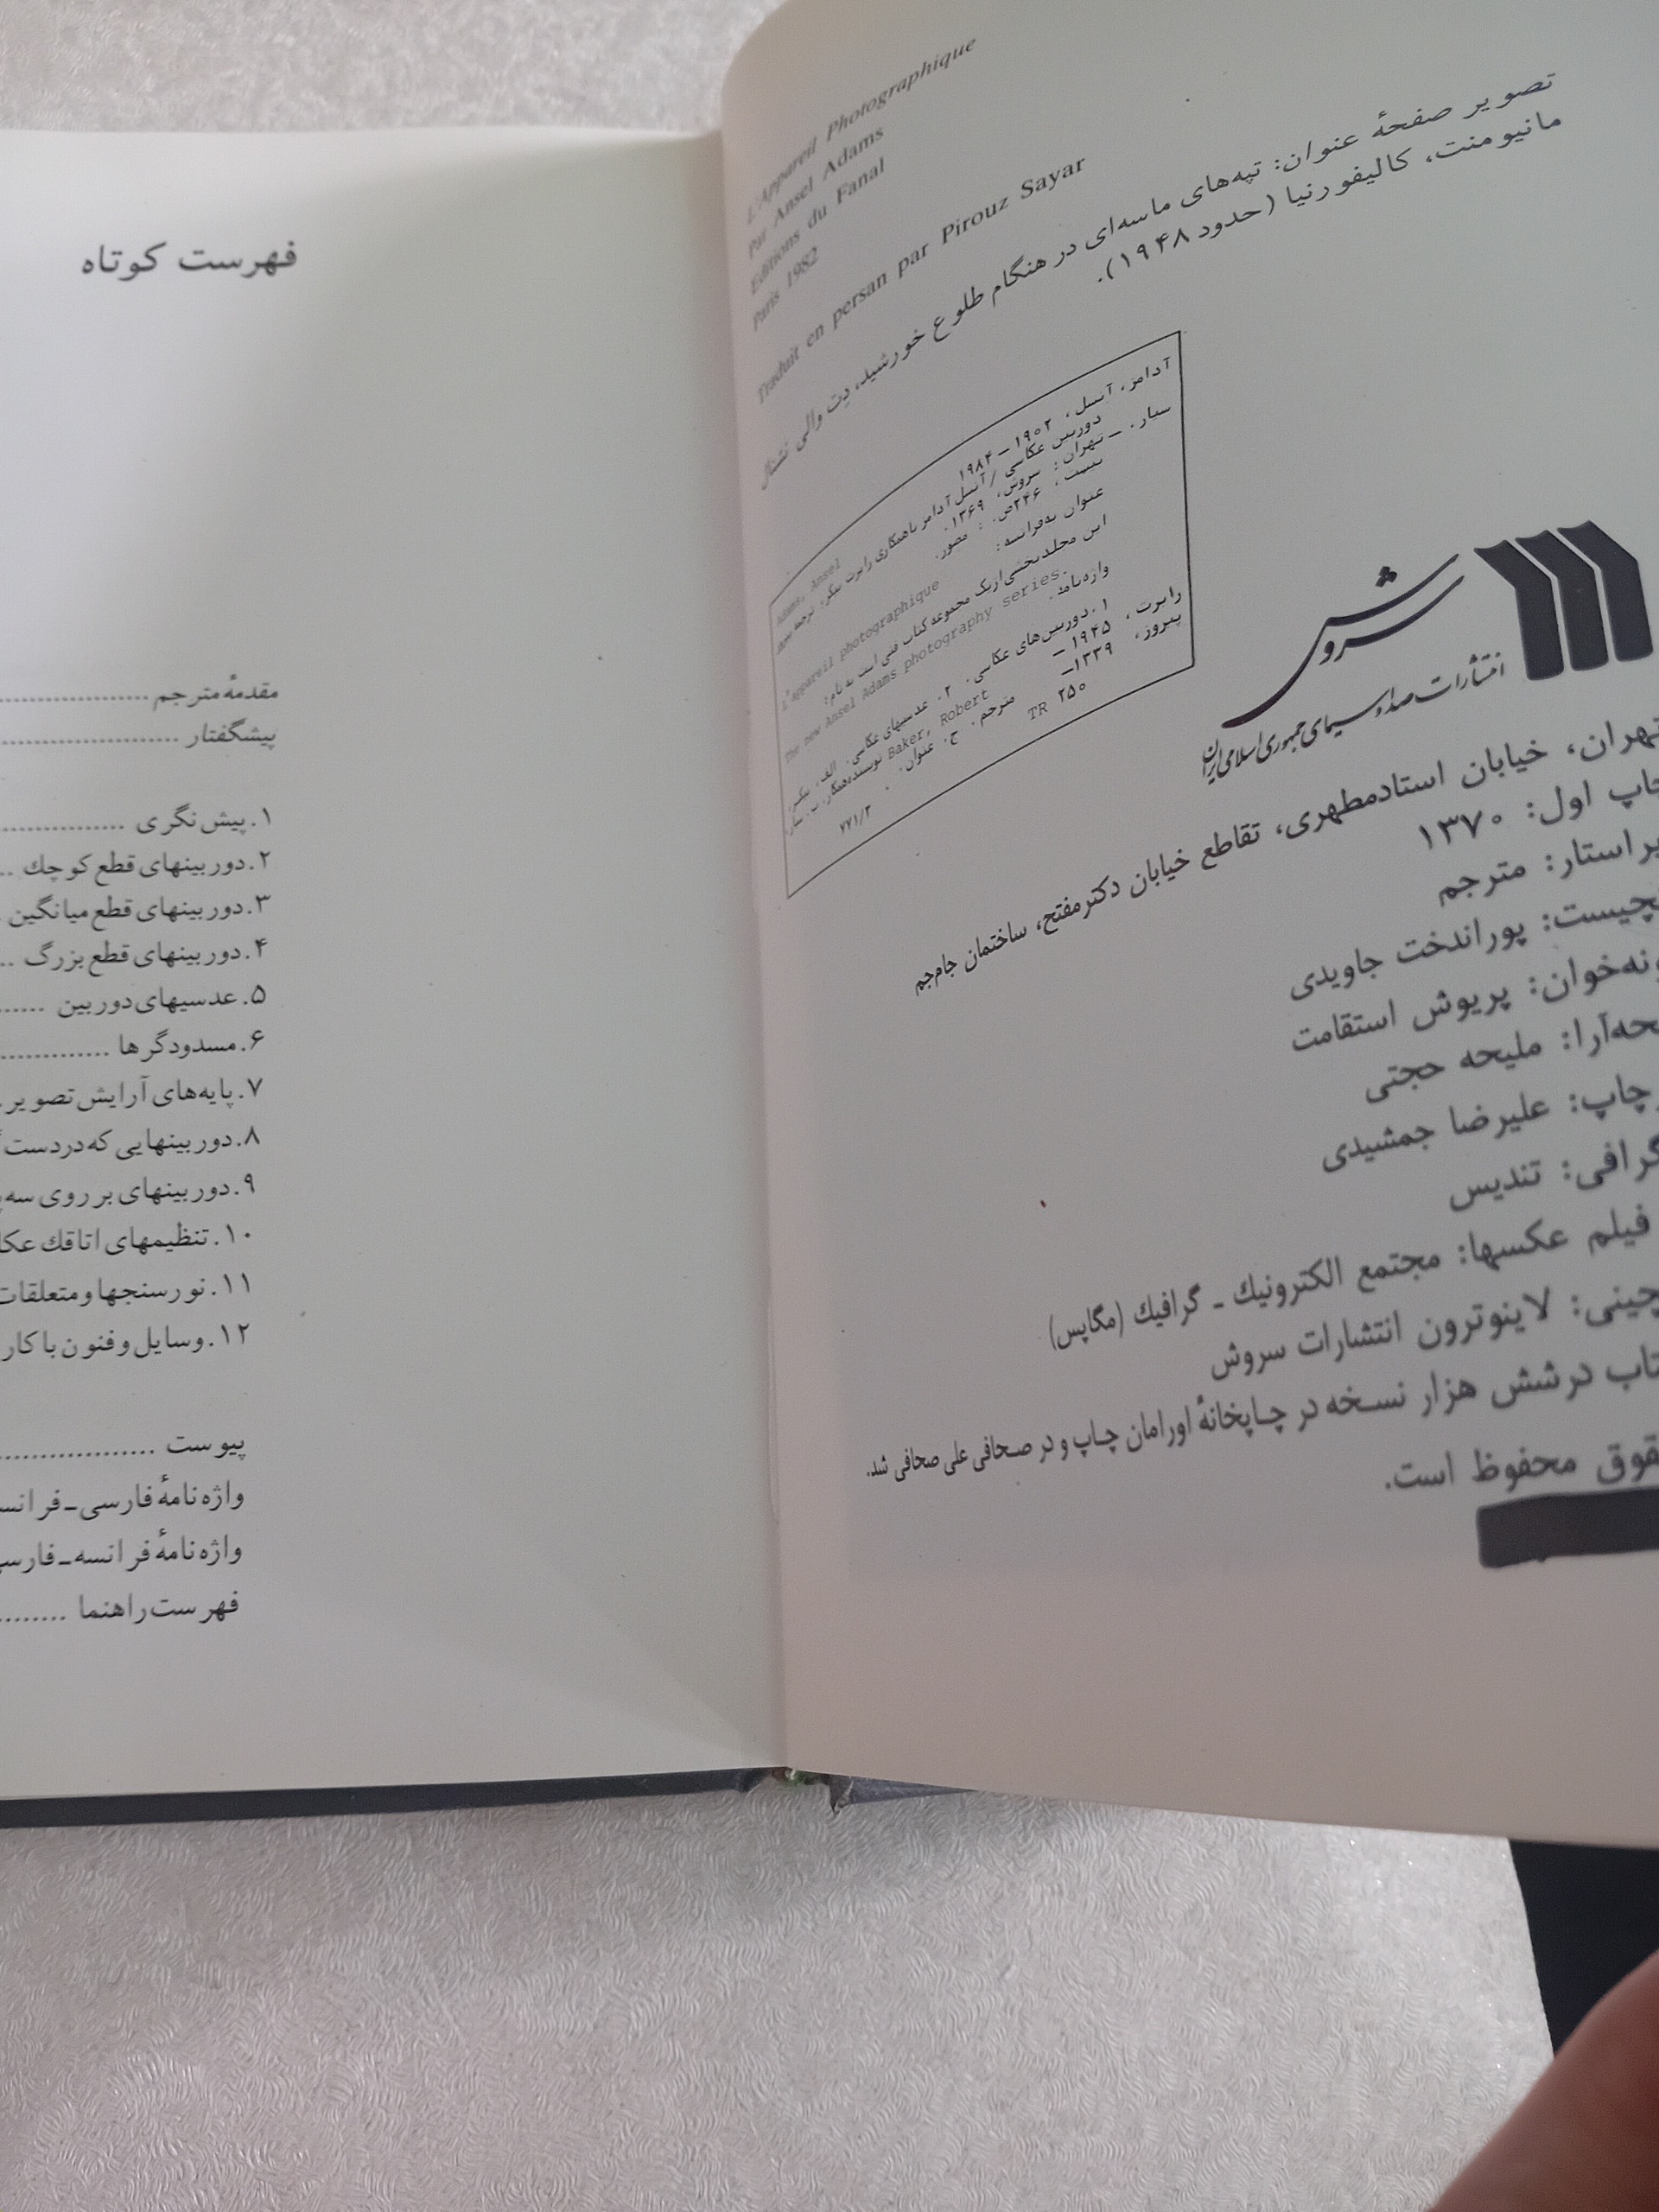 L'Appareil Photographique
Par Ansel Adams
Editions du Fanal
Paris 1982
Traduit en persan par Pirouz Sayar
تصویر صفحهٔ عنوان: تپه‌های ماسه‌ای در هنگام طلوع خورشید، دِت والی نشنال
مانیومنت، کالیفورنیا (حدود ۱۹۴۸).
آدامز، آنسل، ۱۹۰۲ – ۱۹۸۴
Adams, Ansel
دوربین عکاسی / آنسل آدامز باهمکاری رابرت بیکر؛ ترجمه پیروز
سیار. – تهران: سروش، ۱۳۶۹.
بیست، ۲۴۶ص.: مصور.
عنوان به‌فرانسه:
L'appareil photographique
این مجلدبخشی‌ازیک مجموعه کتاب فنی است به نام:
The new Ansel Adams photography series.
واژه‌نامه.
۱.دوربین‌های عکاسی. ۲. عدسیهای عکاسی. الف. بیکر،
رابرت، ۱۹۴۵ – Baker, Robert نویسنده‌همکار. ب. سیار،
پیروز، ۱۳۳۹– مترجم. ج. عنوان.
TR ۲۵۰
۷۷۱/۳
سروش
انتشارات صدا و سیمای جمهوری اسلامی ایران
تهران، خیابان استادمطهری، تقاطع خیابان دکترمفتح، ساختمان جام‌جم
چاپ اول: ۱۳۷۰
مترجم
پوراندخت جاویدی
پریوش استقامت
ملیحه حجتی
چاپ: علیرضا جمشیدی
تندیس
فیلم عکسها: مجتمع الکترونیك ـ گرافیك (مگاپس)
لاینوترون انتشارات سروش
درشش هزار نسخه در چاپخانهٔ اورامان چاپ و در صحافی علی صحافی شد.
محفوظ است.
فهرست کوتاه
مقدمهٔ مترجم ...................
پیشگفتار ...................
۱. پیش‌نگری ...................
۲. دوربینهای قطع کوچك ..
۳. دوربینهای قطع میانگین
۴. دوربینهای قطع بزرگ ..
۵. عدسیهای دوربین ......
۶. مسدودگرها ..............
۷. پایه‌های آرایش تصویر.
۸. دوربینهایی که دردست
۹. دوربینهای بر روی
۱۰. تنظیمهای اتاقك
۱۱. نورسنجها و متعلقات
۱۲. وسایل و فنون با
پیوست ...................
واژه‌نامهٔ فارسی ـ
واژه‌نامهٔ فرانسه ـ
فهرست راهنما ........